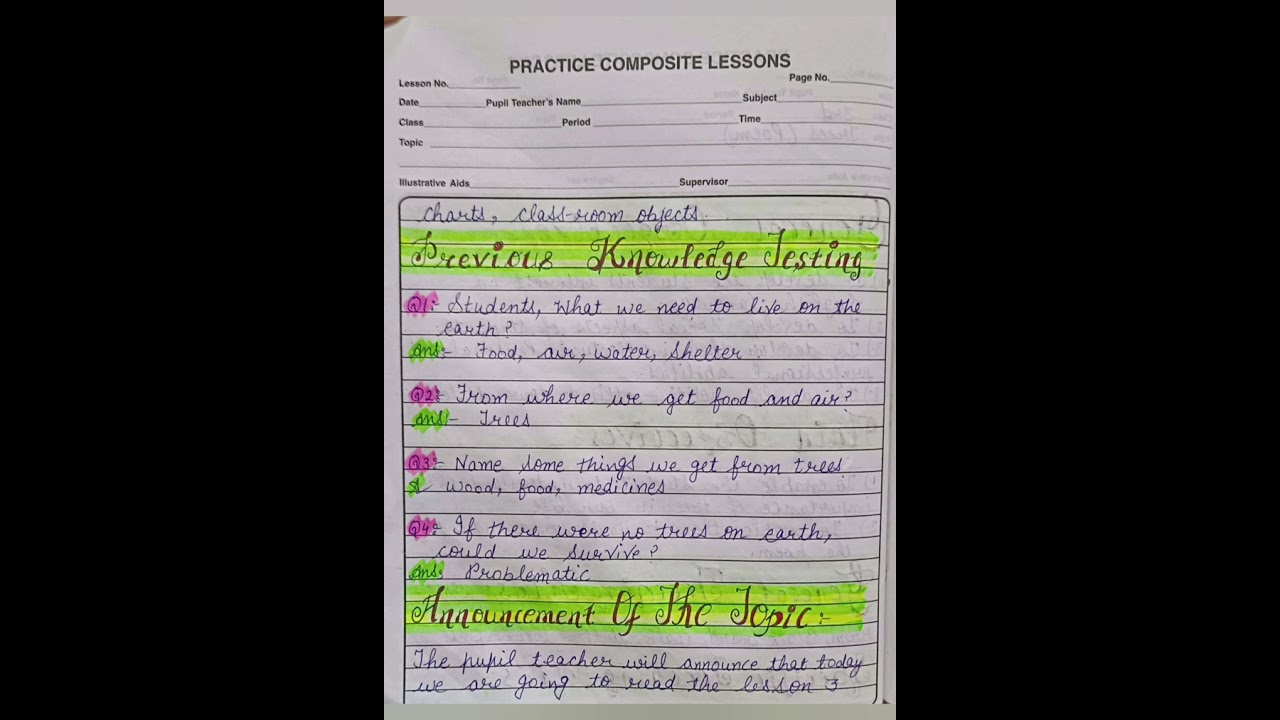 PRACTICE COMPOSITE LESSONS
Lesson No. Page No.
Date Pupil Teacher's Name Subject
Class Period Time
Topic
Illustrative Aids Supervisor
charts, class-room objects.
Previous Knowledge Testing
Q1:- Students, What we need to live on the
earth?
Ans:- Food, air, water, shelter
Q2:- From where we get food and air?
Ans:- Trees
Q3:- Name some things we get from trees
wood, food, medicines
Q4:- If there were no trees on earth,
could we survive?
Ans:- Problematic
Announcement Of The Topic:-
The pupil teacher will announce that today
we are going to read the lesson 3